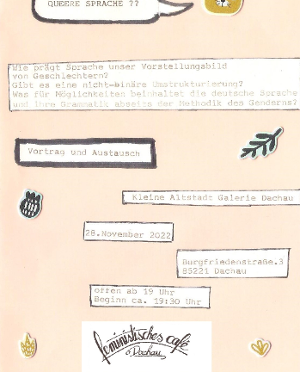 QUEERE SPRACHE ??
Wie prägt Sprache unser Vorstellungsbild
von Geschlechtern?
Gibt es eine nicht-binäre Umstrukturierung?
Was für Möglichkeiten beinhaltet die deutsche Sprache
und ihre Grammatik abseits der Methodik des Genderns?
Vortrag und Austausch
Kleine Altstadt Galerie Dachau
28.November 2022
Burgfriedenstraße.3
85221 Dachau
offen ab 19 Uhr
Beginn ca. 19:30 Uhr
feministisches café
Dachau